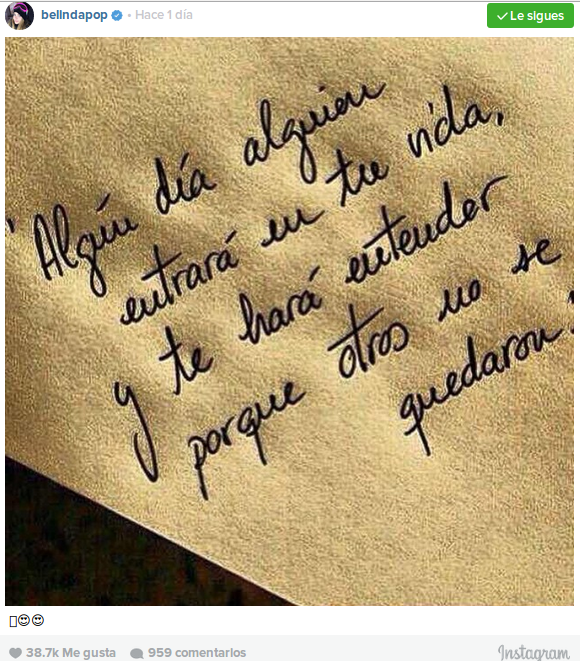 belindapop • Hace 1 día
Le sigues
"Algún día alguien
entrará en tu vida,
y te hará entender
porque otros no se
quedaron"
😍😍
38.7k Me gusta 959 comentarios Instagram